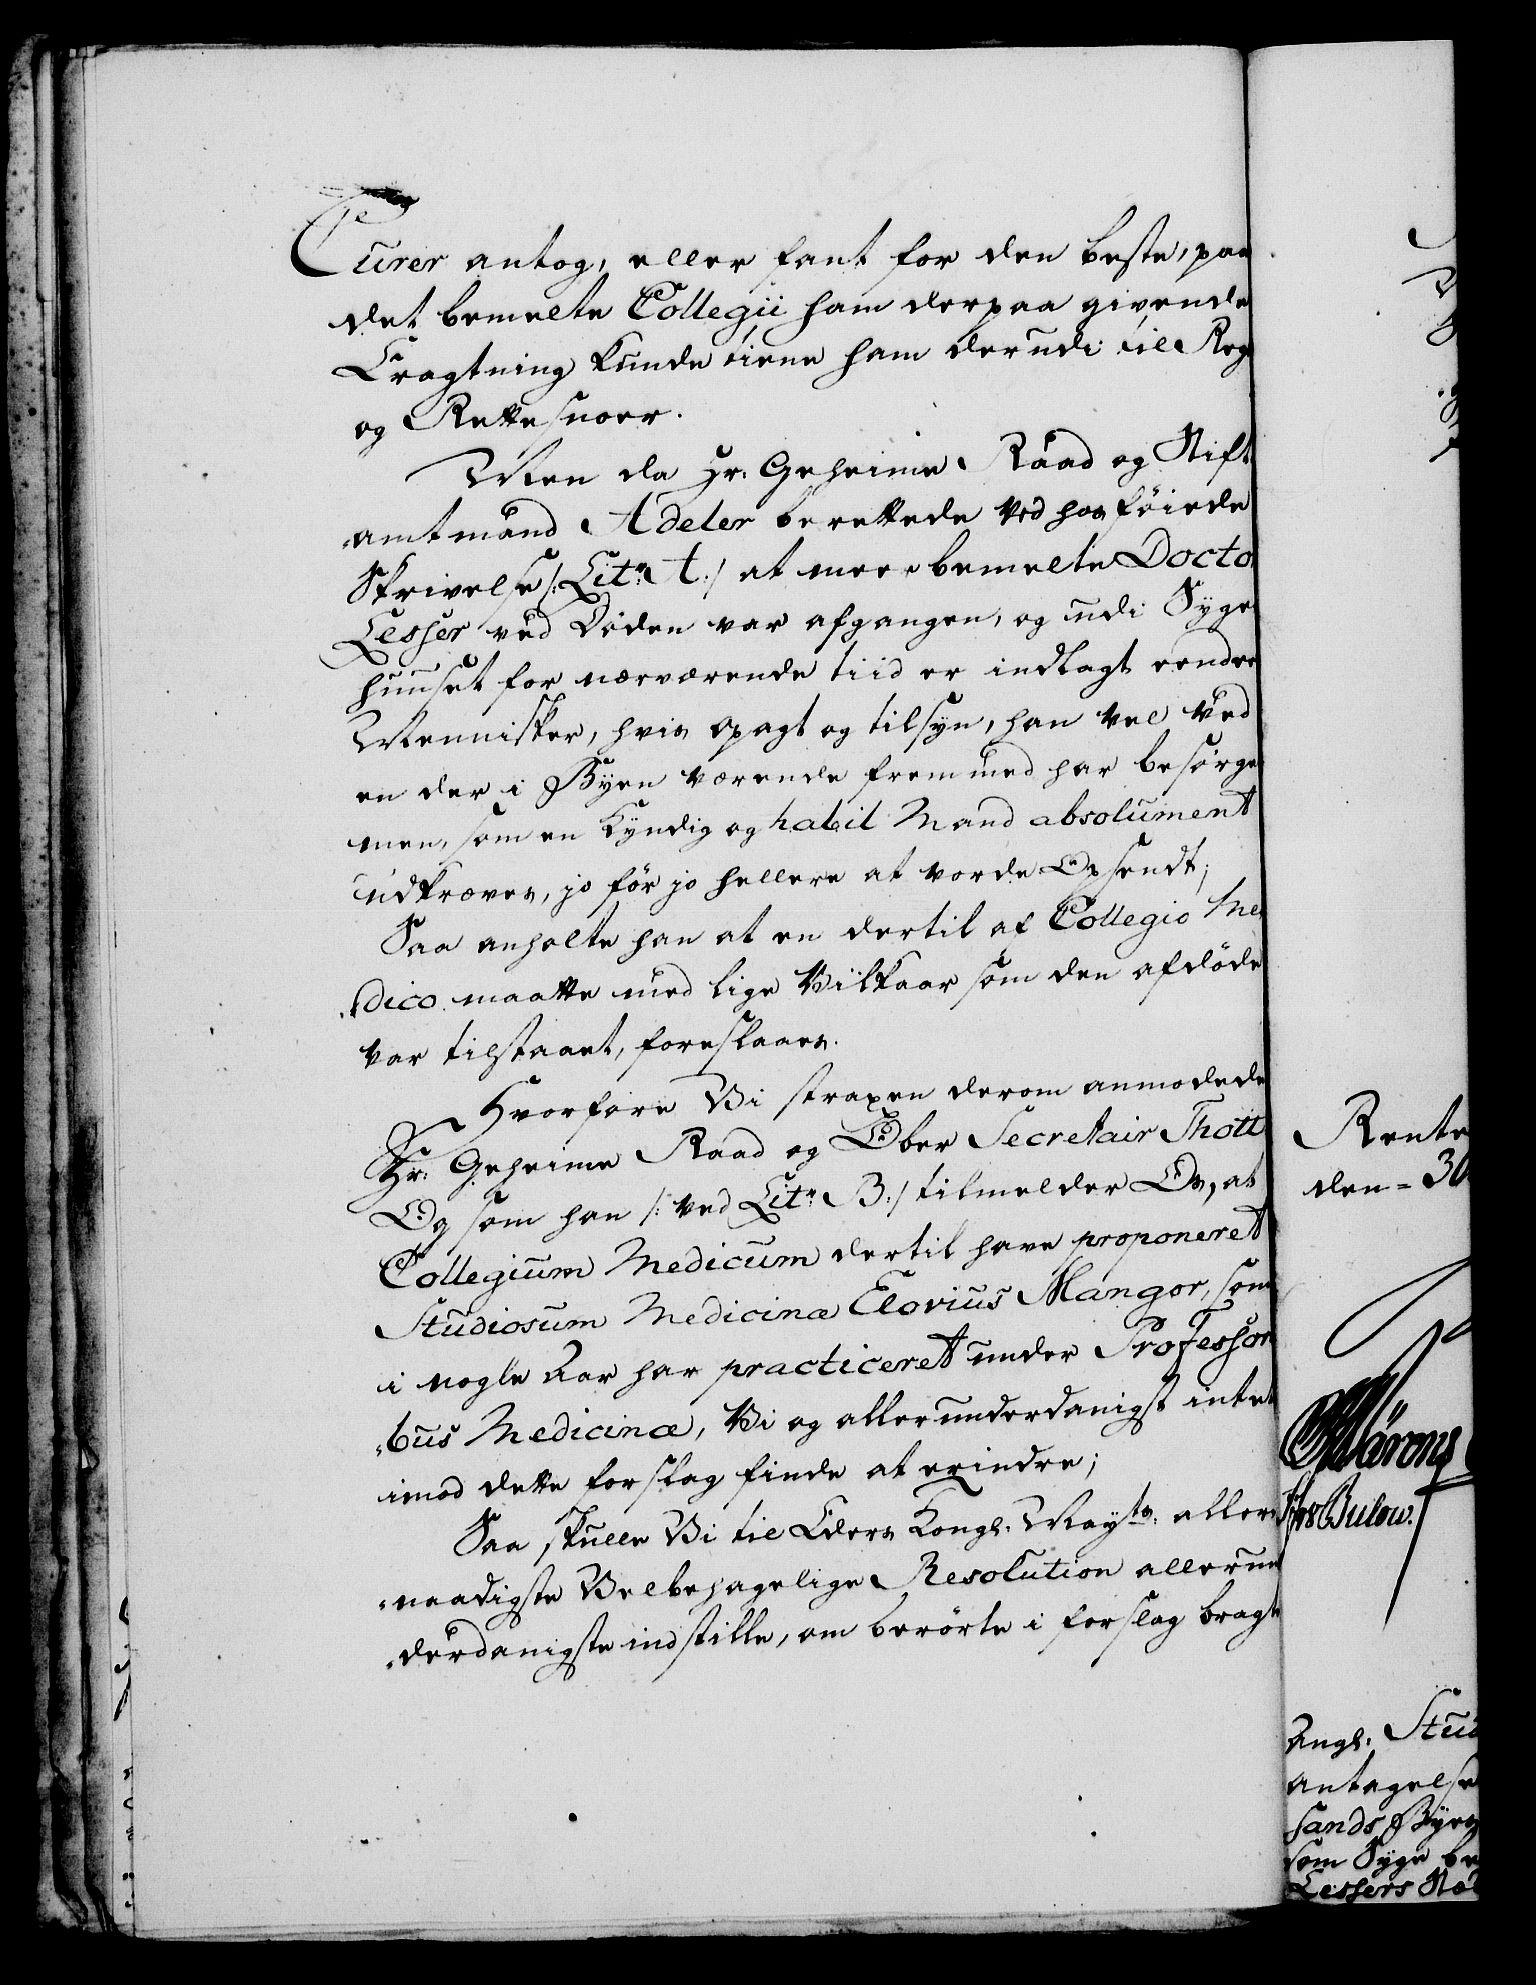 Curer antog, eller fant for den beste, paa
det bemelte Collegii ham derpaa givende
Eragtning kunde tiene ham derudi til Reg
og Rettesnoer.
Men da Hr: Geheime Raad og Stift
amtmand Adeler berettede ved hosföiede
Skrivelse /: Litr: A :/ at meerbemelte Docto
Lesser ved Döden var afgangen, og udi Syge
huuset for nærværende tiid er indlagt eendee
Mennisker, hvis opagt og tilsyn, han vel ved
en der i Byen værende fremmed har besörge
men, som en kyndig og habil Mand absolument
udkræves, jo för jo hellere at vorde Opsendt;
Saa anholte han at en dertil af Collegio Me
dico maatte med lige Vilkaar som den afdöde
var tilstaaet, foreslaaes.
Hvorfore Vi straxen derom anmodede
Hr: Geheime Raad og Ober Secretair Thott
Og som han /: ved Litr: B :/ tilmelder Os, at
Collegium Medicum dertil have proponeret
Studiosum Medicinæ Elovius Mangor, som
i nogle Aar har practiceret under Professori
bus Medicinæ, Vi og allerunderdanigst intet
imod dette forslag finde at erindre;
Saa skulle Vi til Eders Kongl: Mayts: aller
naadigste Velbehagelige Resolution allerun
derdanigste indstille, om berörte i forslag bragte
Rente
den = 30
Bulow.
Angl: Stud
antagelse
sands Byes
som Syge be
Lessers Stæ